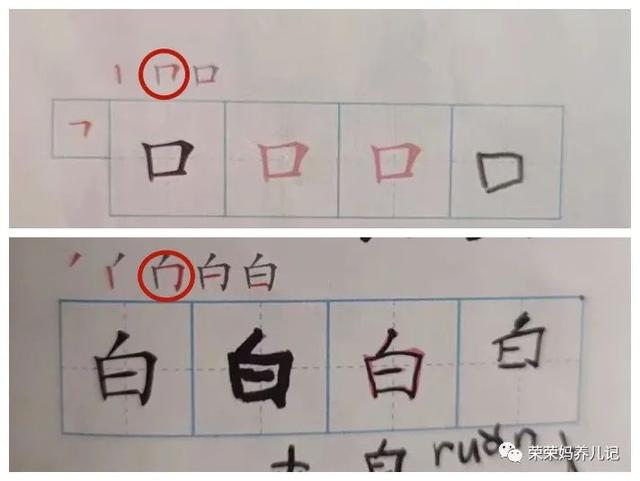 丨 冂 口
𠃍 口 口 口 口
白
白 白 白 白
白
荣荣妈养儿记